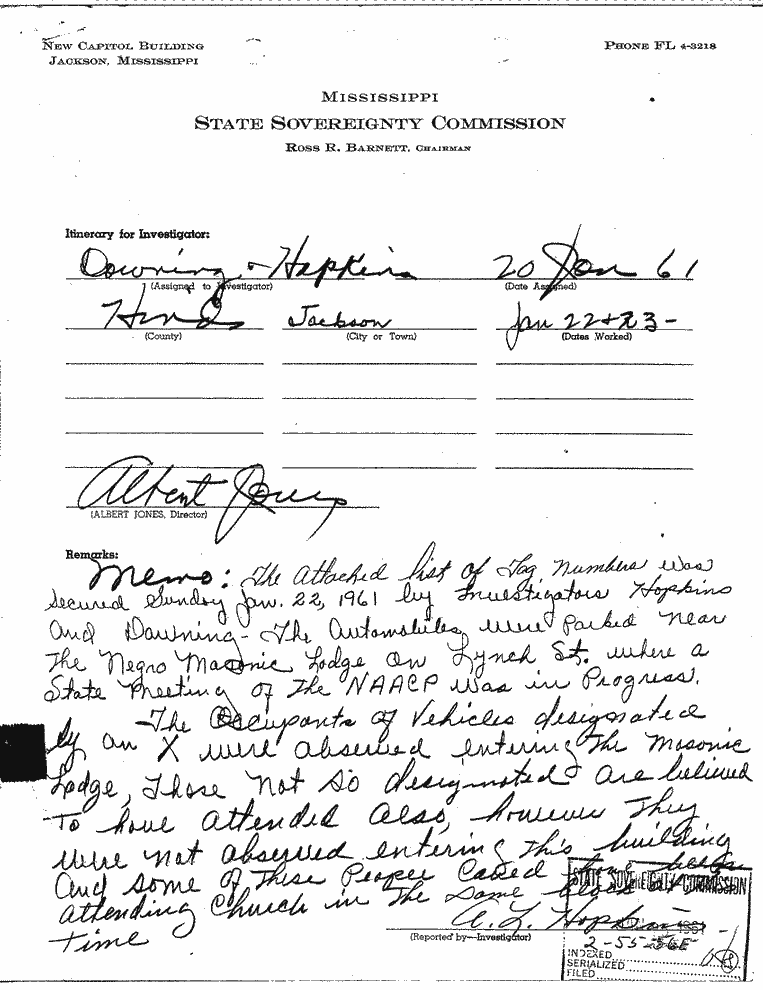 NEW CAPITOL BUILDING
JACKSON, MISSISSIPPI
PHONE FL 4-3218
MISSISSIPPI
STATE SOVEREIGNTY COMMISSION
ROSS R. BARNETT, CHAIRMAN
Itinerary for Investigator:
Downing + Hopkins 20 Jan 61
(Assigned to Investigator) (Date Assigned)
Hinds Jackson Jan 22 + 23 -
(County) (City or Town) (Dates Worked)
Albert Jones
(ALBERT JONES, Director)
Remarks:
Memo: The Attached list of Tag Numbers was
Secured Sunday Jan. 22, 1961 by Investigators Hopkins
And Downing - The Automobiles were Parked near
The Negro Masonic Lodge on Lynch St. where a
State Meeting of The NAACP was in Progress.
The Occupants of Vehicles designated
by an X were observed entering The Masonic
Lodge, Those not so designated are believed
To have attended also, however They
were not observed entering This building
And some of These People could have been
attending Church in The Same
Time
STATE SOVEREIGNTY COMMISSION
A. L. Hopkins
(Reported by—Investigator)
2-55-
INDEXED
SERIALIZED
FILED